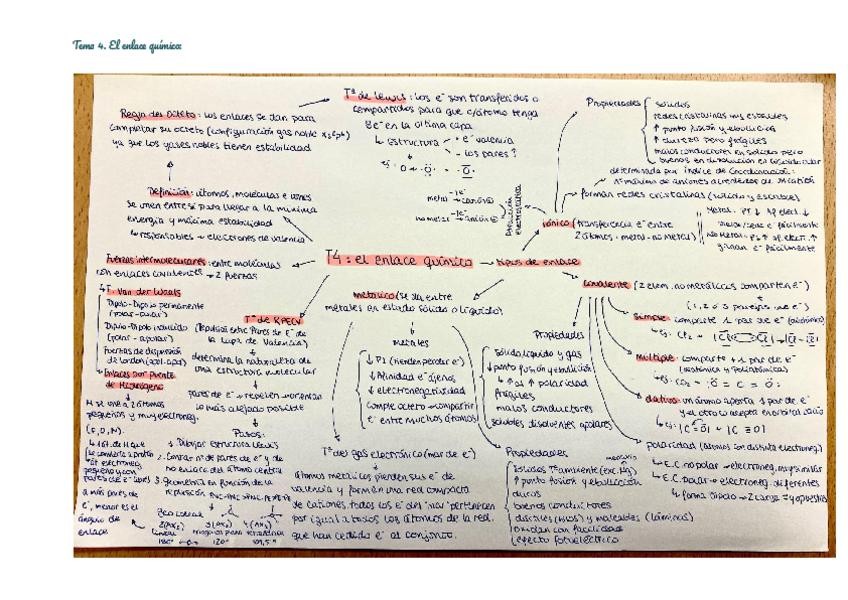 Tema 4. El enlace químico
Regla del Octeto: los enlaces se dan para
completar su octeto (configuración gas noble
ya que los gases nobles tienen estabilidad
Tª de Lewis: los e⁻ son transferidos o
compartidos para que c/átomo tenga
8e⁻ en la última capa
Estructura
e⁻ valencia
los pares?
Propiedades
sólidos
redes cristalinas muy estables
↑ punto fusión y ebullición
↑ dureza pero frágiles
malos conductores en sólido pero
buenos en disolución
determinada por índice de Coordinación:
nº máximo de aniones alrededor de
forman redes cristalinas
Definición: átomos, moléculas e iones
se unen entre sí para llegar a la mínima
energía y máxima estabilidad
responsables → electrones de valencia
metal → catión
no metal → anión
iónico (transferencia e⁻ entre
2 átomos: metal-no metal)
T4: el enlace químico → tipos de enlace
Fuerzas intermoleculares: entre moléculas
con enlaces covalentes → 2 fuerzas
F. Van der Waals
Dipolo-Dipolo permanente
(polar-polar)
Dipolo-Dipolo inducido
(polar-apolar)
Fuerzas de dispersión
de London
Enlaces por puente
de Hidrógeno
H se une a 2 átomos
pequeños y muy electroneg.
(F, O, N).
Tª de RPECV
(Repulsión entre Pares de E⁻ de
la Capa de Valencia)
determina la naturaleza de
una estructura molecular
pares de e⁻ → repelen
lo más alejado posible
Pasos:
1. Dibujar estructura Lewis
2. Contar nº de pares de e⁻ y de
no enlace del átomo central
3. geometría en función de la
repulsión
a más pares de
e⁻, menor es el
ángulo de
enlace
lineal
180°
120°
109,5°
metálico (se da entre
metales en estado sólido o líquido)
metales
↓ P.I (tienden perder e⁻)
↓ Afinidad e⁻ ajenos
↓ electronegatividad
comple octeto → compartir
e⁻ entre muchos átomos
Tª del gas electrónico (mar de e⁻)
átomos metálicos pierden sus e⁻ de
valencia y forman una red compacta
de cationes, todos los e⁻ del "mar" pertenecen
por igual a todos los átomos de la red,
que han cedido e⁻ al conjunto.
Propiedades
sólidos Tª ambiente (exc. Hg)
mercurio
↑ punto fusión y ebullición
duros
buenos conductores
dúctiles (hilos) y maleables (láminas)
oxidan con facilidad
efecto fotoeléctrico
covalente (2 elem. no metálicos comparten e⁻)
(1, 2 o 3 parejas de e⁻)
Propiedades
sólido, líquido y gas
↓ punto fusión y ebullición
↳ ↑ si ↑ polaridad
frágiles
malos conductores
solubles disolventes apolares
simple: comparte 1 par de e⁻
múltiple: comparte + 1 par de e⁻
ej: CO₂ = Ö = C = Ö
dativo: un átomo aporta 1 par de e⁻
y el otro lo acepta en orbital vacío
polaridad (átomos con distinta electroneg.)
E.C. no polar → electroneg. muy similar
E.C. polar → electroneg. diferentes
↳ forma dipolo → 2 cargas ≠ y opuestas